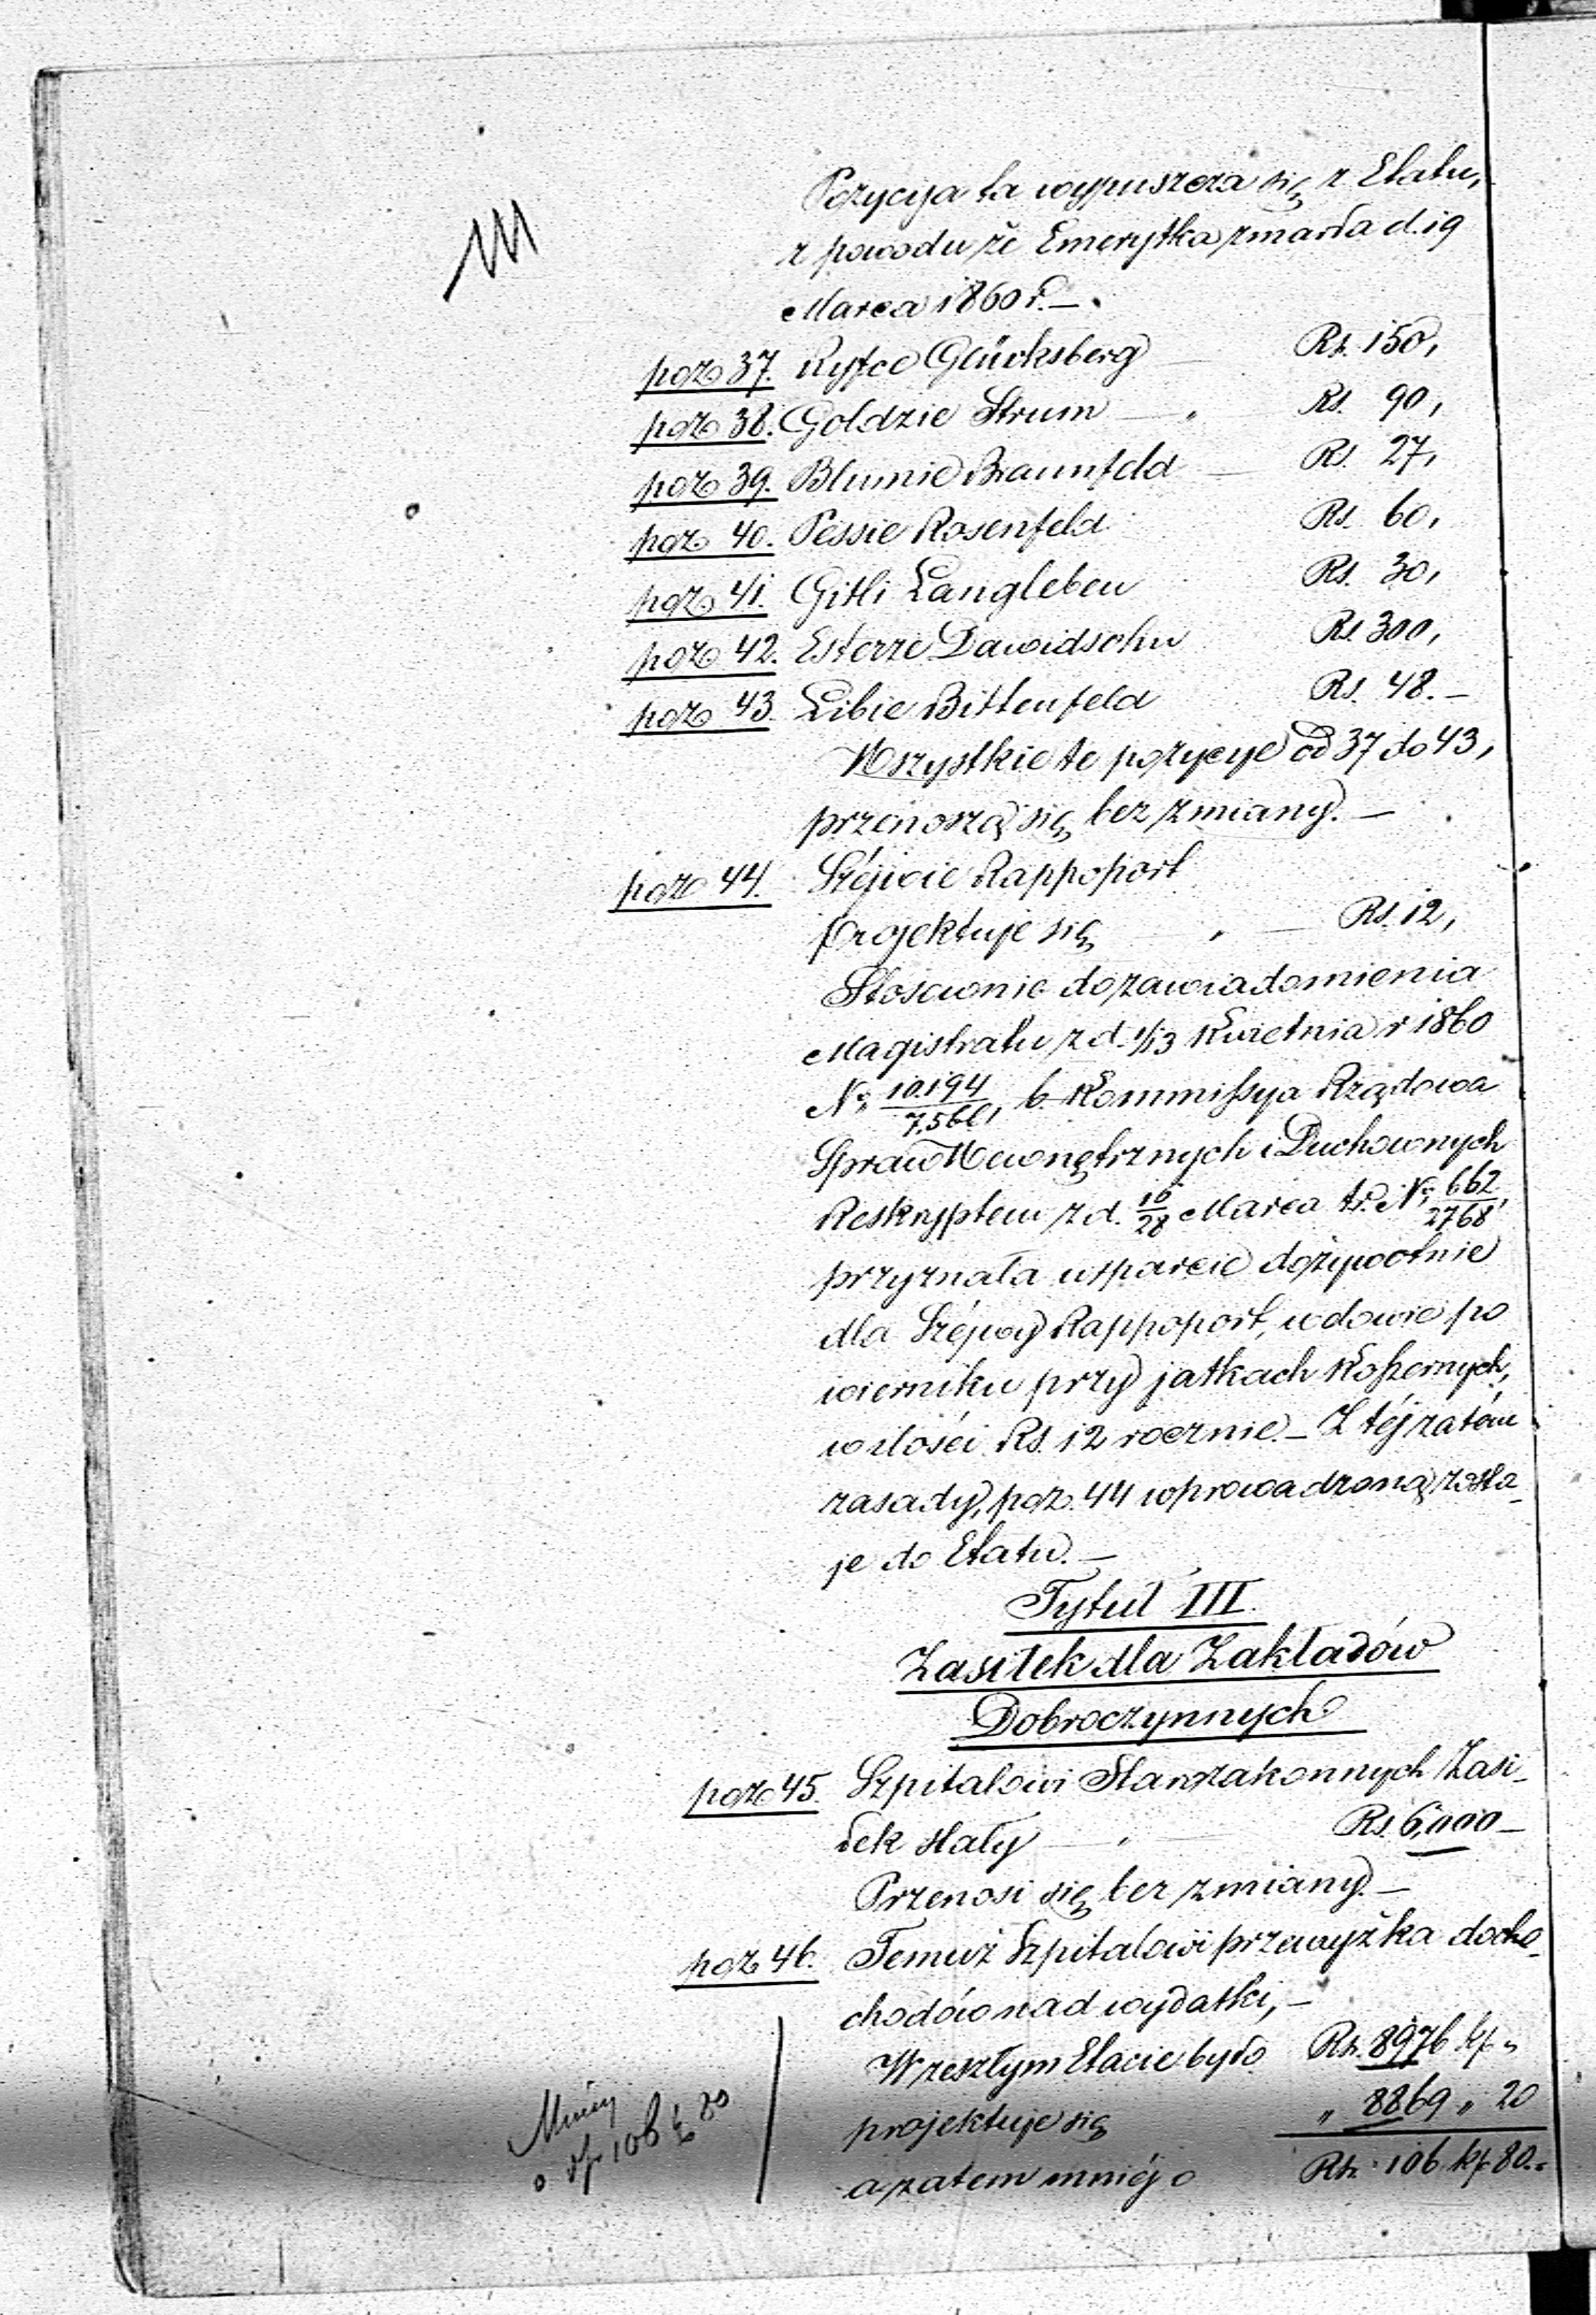 Pozycyja ta wypuszcza się z Etatu,
z powodu że Emerytka zmarła d. 19
Marca 1860 r. —
poz 37. Ryfce Glücksberg Rs. 150,
poz 38. Goldzie Strum — „ Rs. 90,
poz 39. Blumie Braunfeld — Rs. 27,
poz 40. Pessie Rosenfeld Rs. 60,
poz 41. Gitli Langleben Rs. 30,
poz 42. Esterze Dawidsohn Rs 300,
poz 43. Libie Bittenfeld Rs. 48. —
Wszystkie te pozycye od 37 do 43,
przenoszą się bez zmiany. —
poz 44. Széjwie Rappoport
projektuje się — „ — Rs. 12,
Stosownie do zawiadomienia
Magistratu z d. 1/13 Kwietnia r 1860
№ 10.194/7.560, b. Kommissya Rządowa
Spraw Wewnętrznych i Duchownych
Reskryptem z d. 16/28 Marca t.r. № 662/2768,
przyznała wsparcie dożywotnie
dla Széjwy Rappoport, wdowie po
wierniku przy jatkach Koszernych,
w ilości Rs. 12 rocznie. — Z téj zatém
zasady, poz. 44 wprowadzoną zosta-
je do Etatu. —
Tytuł III.
Zasiłek dla Zakładów
Dobroczynnych
poz 45. Szpitalowi Starozakonnych Zasi-
łek stały — „ — Rs. 6,000 —
Przenosi się bez zmiany. —
poz 46. Temuż Szpitalowi przewyżka docho-
chodów nad wydatki, —
W zeszłym Etacie było Rs. 8976 kp „
projektuje się „ 8869 „ 20
a zatem mniéj o Rs. 106 kp 80. „
Mniéj
o rs 106 k 80